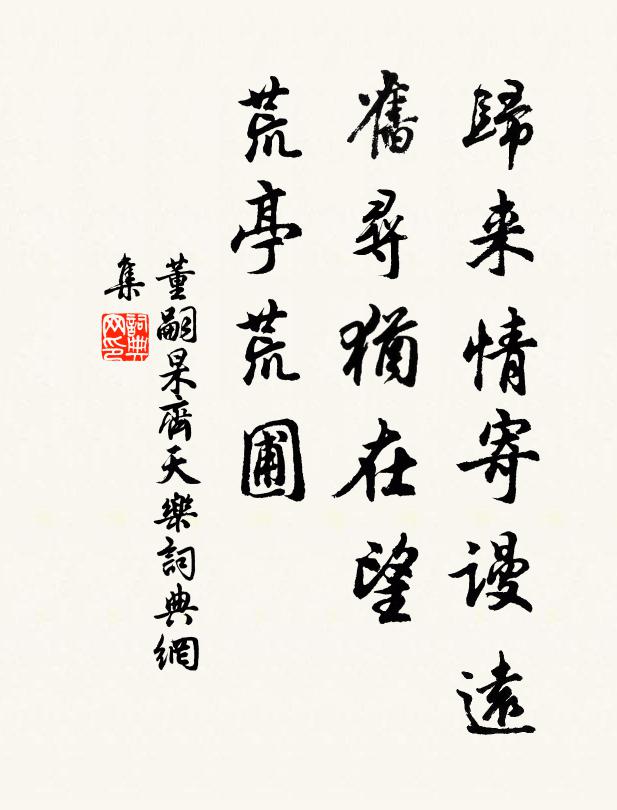 歸来情寄謾遠
舊尋猶在望
荒亭荒圃
董嗣杲齊天樂詞典網
集
詞典
网印